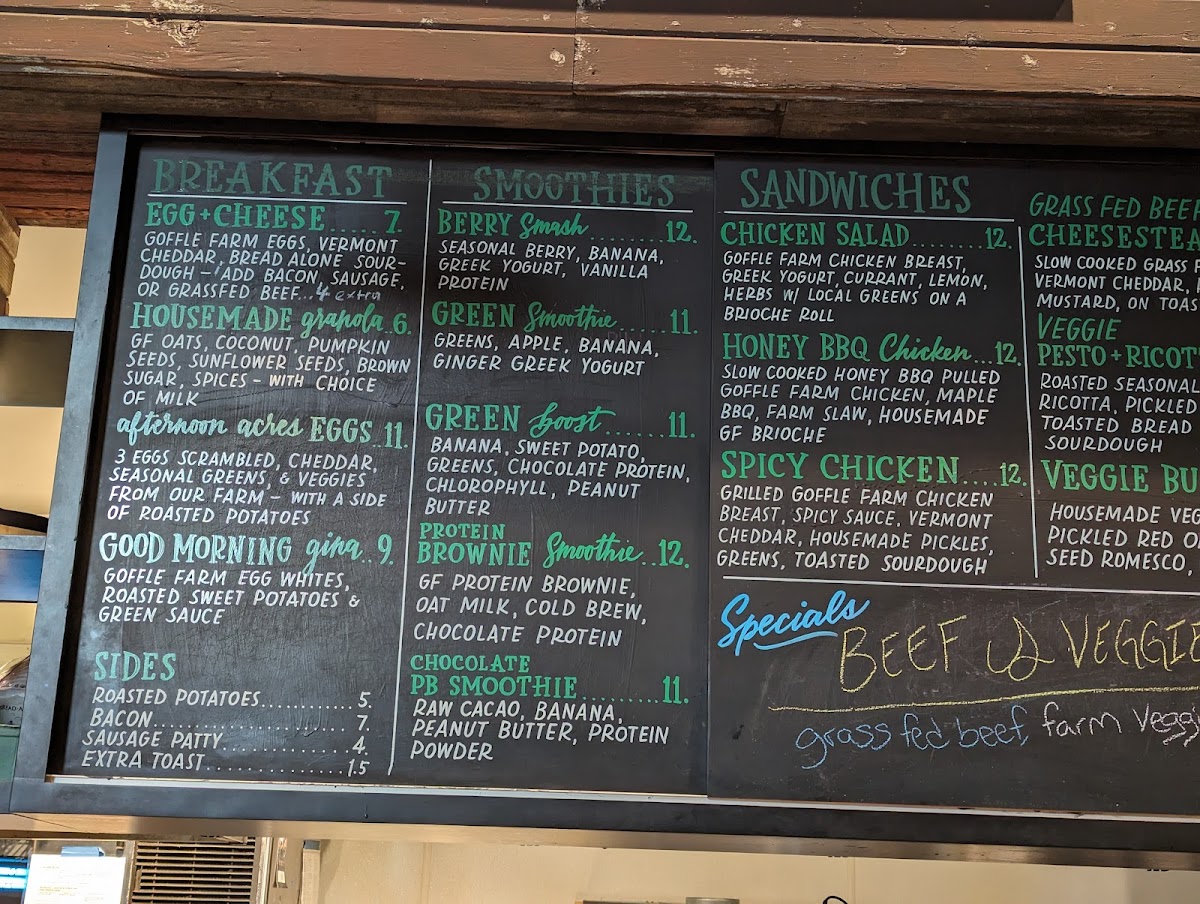 BREAKFAST
EGG + CHEESE ...... 7.
GOFFLE FARM EGGS, VERMONT
CHEDDAR, BREAD ALONE SOUR-
DOUGH - ADD BACON, SAUSAGE,
OR GRASSFED BEEF...4 extra
HOUSEMADE granola..6.
GF OATS, COCONUT, PUMPKIN
SEEDS, SUNFLOWER SEEDS, BROWN
SUGAR, SPICES - WITH CHOICE
OF MILK
afternoon acres EGGS..11.
3 EGGS SCRAMBLED, CHEDDAR,
SEASONAL GREENS, & VEGGIES
FROM OUR FARM - WITH A SIDE
OF ROASTED POTATOES
GOOD MORNING gina..9.
GOFFLE FARM EGG WHITES,
ROASTED SWEET POTATOES &
GREEN SAUCE
SIDES
ROASTED POTATOES............5.
BACON.........................7.
SAUSAGE PATTY................4.
EXTRA TOAST..................1.5
SMOOTHIES
BERRY Smash.........12.
SEASONAL BERRY, BANANA,
GREEK YOGURT, VANILLA
PROTEIN
GREEN Smoothie......11.
GREENS, APPLE, BANANA,
GINGER GREEK YOGURT
GREEN boost.......11.
BANANA, SWEET POTATO,
GREENS, CHOCOLATE PROTEIN,
CHLOROPHYLL, PEANUT
BUTTER
PROTEIN
BROWNIE Smoothie..12.
GF PROTEIN BROWNIE,
OAT MILK, COLD BREW,
CHOCOLATE PROTEIN
CHOCOLATE
PB SMOOTHIE........11.
RAW CACAO, BANANA,
PEANUT BUTTER, PROTEIN
POWDER
SANDWICHES
CHICKEN SALAD........12.
GOFFLE FARM CHICKEN BREAST,
GREEK YOGURT, CURRANT, LEMON,
HERBS W/ LOCAL GREENS ON A
BRIOCHE ROLL
HONEY BBQ Chicken...12.
SLOW COOKED HONEY BBQ PULLED
GOFFLE FARM CHICKEN, MAPLE
BBQ, FARM SLAW, HOUSEMADE
GF BRIOCHE
SPICY CHICKEN....12.
GRILLED GOFFLE FARM CHICKEN
BREAST, SPICY SAUCE, VERMONT
CHEDDAR, HOUSEMADE PICKLES,
GREENS, TOASTED SOURDOUGH
GRASS FED BEEF
CHEESESTEA
SLOW COOKED GRASS
VERMONT CHEDDAR,
MUSTARD, ON TOAS
VEGGIE
PESTO + RICOT
ROASTED SEASONAL
RICOTTA, PICKLED
TOASTED BREAD
SOURDOUGH
VEGGIE BU
HOUSEMADE VEG
PICKLED RED O
SEED ROMESCO,
Specials
BEEF & VEGGIE
grass fed beef, farm vegg